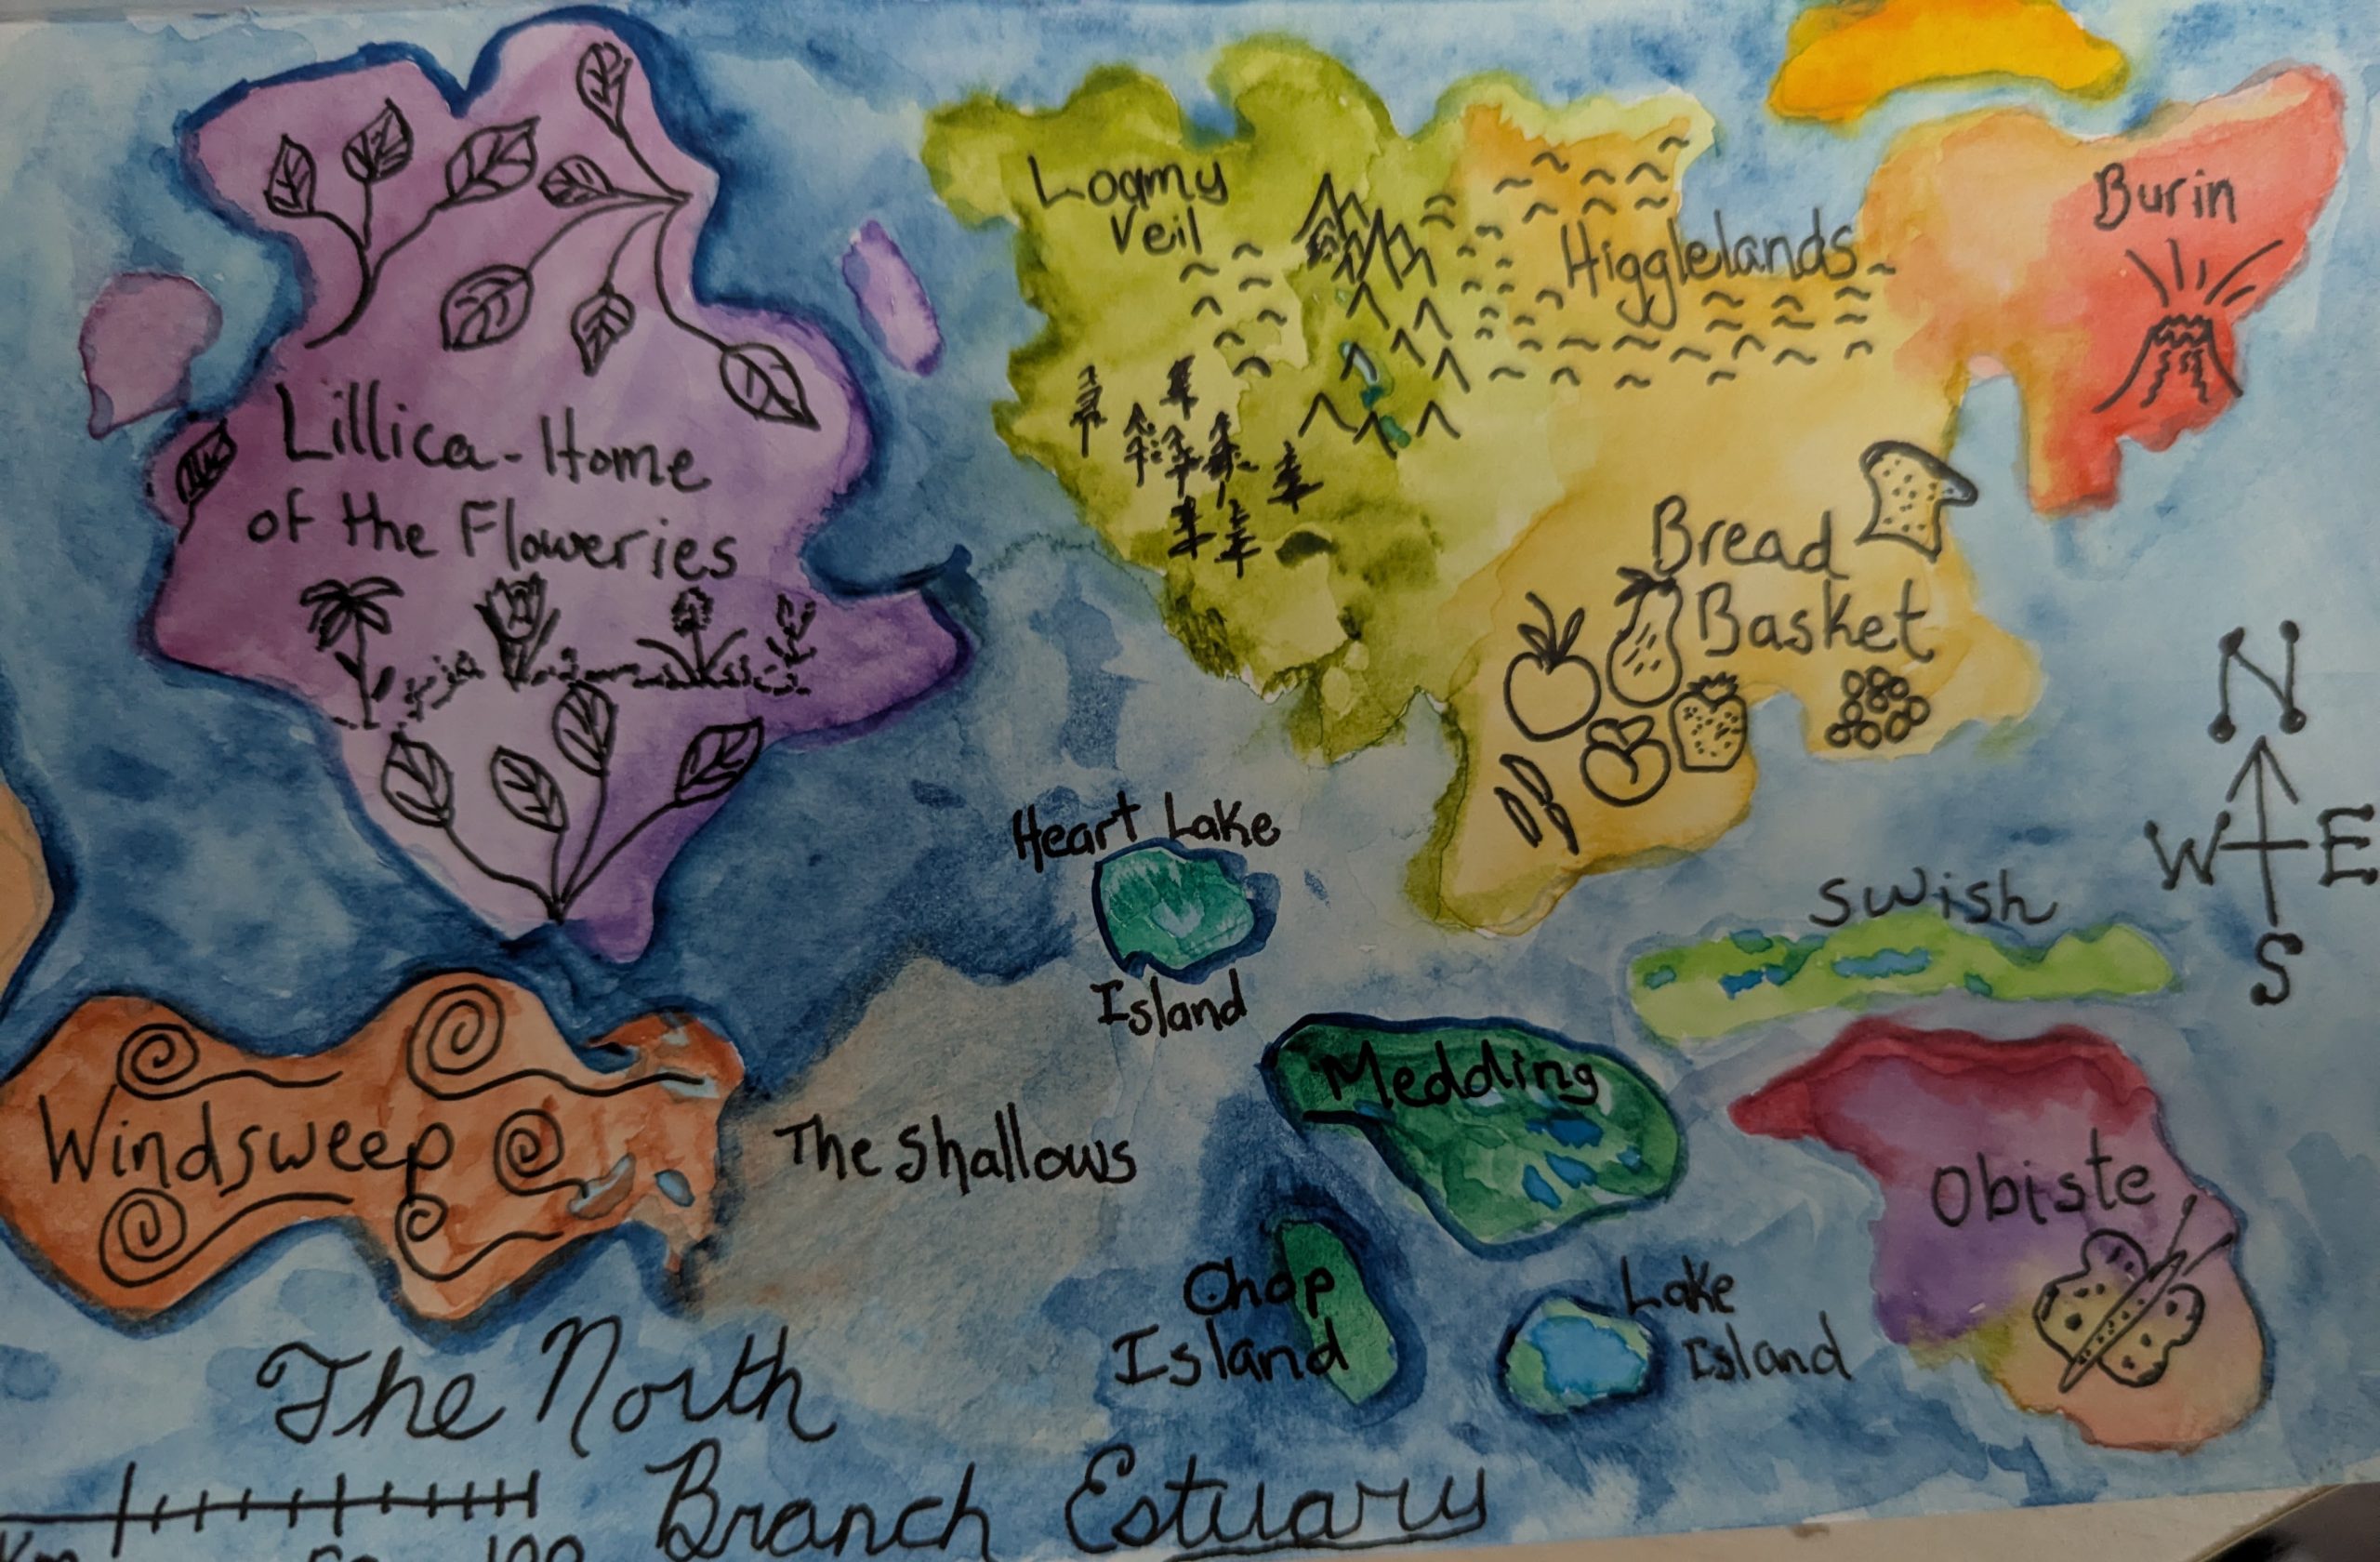 Loamy
Veil
Higglelands
Burin
Lillica - Home
of the Floweries
Bread
Basket
N
W E
S
Heart Lake
Island
Swish
Medding
Windsweep
The Shallows
Obiste
Chop
Island
Lake
Island
The North
Branch Estuary
Km